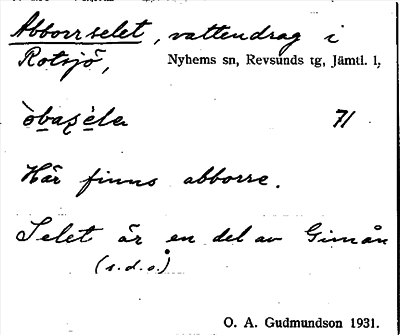 Abborrselet, vattendrag i
Rotsjö, Nyhems sn, Revsunds tg, Jämtl. l,
71
Här finns abborre.
Selet är en del av Gimån
(s.d.o.)
O. A. Gudmundson 1931.